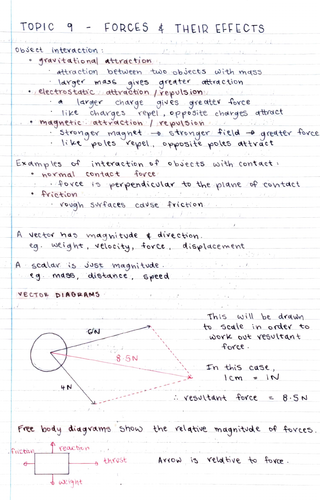 TOPIC 9 - FORCES & THEIR EFFECTS
Object interaction:
• gravitational attraction
· attraction between two objects with mass
· larger mass gives greater attraction
• electrostatic attraction / repulsion
· a larger charge gives greater force
· like charges repel, opposite charges attract
• magnetic attraction / repulsion
· stronger magnet → stronger field → greater force
· like poles repel, opposite poles attract
Examples of interaction of objects with contact:
• normal contact force
· force is perpendicular to the plane of contact
• friction
· rough surfaces cause friction
A vector has magnitude & direction.
eg. weight, velocity, force, displacement
A scalar is just magnitude.
eg. mass, distance, speed
VECTOR DIAGRAMS
6N
8.5N
4N
This will be drawn
to scale in order to
work out resultant
force.
In this case,
1cm = 1N
∴ resultant force = 8.5N
Free body diagrams show the relative magnitude of forces.
friction
reaction
thrust
weight
Arrow is relative to force.